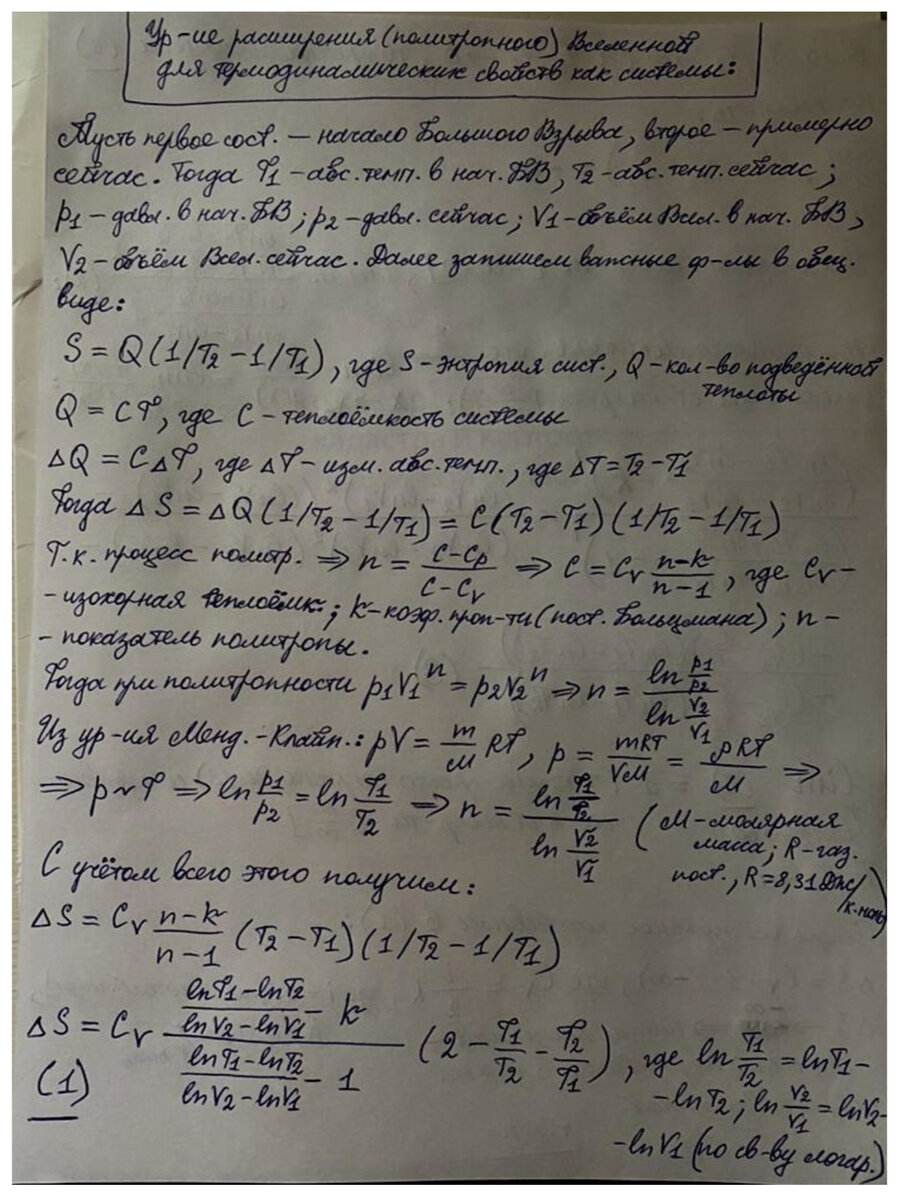 Ур-ие расширения (политропного) Вселенной
для термодинамических свойств как системы:
Пусть первое сост. — начало Большого Взрыва, второе — примерно
сейчас. Тогда T1 - абс. темп. в нач. БВ, T2 - абс. темп. сейчас;
p1 - давл. в нач. БВ; p2 - давл. сейчас; V1 - объём Всел. в нач. БВ,
V2 - объём Всел. сейчас. Далее запишем важные ф-лы в общ.
виде:
S = Q(1/T2 - 1/T1), где S - энтропия сист., Q - кол-во подведённой
теплоты
Q = CT, где C - теплоёмкость системы
ΔQ = CΔT, где ΔT - изм. абс. темп., где ΔT = T2 - T1
Тогда ΔS = ΔQ(1/T2 - 1/T1) = C(T2 - T1)(1/T2 - 1/T1)
Т.к. процесс политр. ⇒ n = (C - Cp)/(C - Cv) ⇒ C = Cv (n - k)/(n - 1), где Cv -
- изохорная теплоёмк.; k - коэф. проп-ти (пост. Больцмана); n -
- показатель политропы.
Тогда при политропности p1V1^n = p2V2^n ⇒ n = ln(p1/p2) / ln(V2/V1)
Из ур-ия Менд.-Клайп.: pV = m/M RT, p = mRT/VM = ρRT/M ⇒
⇒ p ~ T ⇒ ln p1/p2 = ln T1/T2 ⇒ n = ln(T1/T2) / ln(V2/V1) (M - молярная
масса; R - газ.
пост., R = 8,31 Дж/
/К·моль)
С учётом всего этого получим:
ΔS = Cv (n - k)/(n - 1) (T2 - T1)(1/T2 - 1/T1)
ΔS = Cv ((lnT1 - lnT2)/(lnV2 - lnV1) - k) / ((lnT1 - lnT2)/(lnV2 - lnV1) - 1) (2 - T1/T2 - T2/T1), где ln T1/T2 = lnT1 -
(1)
- lnT2; ln V2/V1 = lnV2 -
- lnV1 (по св-ву логар.)